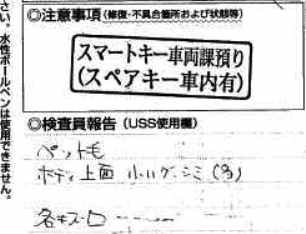 ◎注意事項(修復・不具合箇所および状態等)
スマートキー車両課預り
(スペアキー車内有)
◎検査員報告(USS使用欄)
ペット毛
ボディ上面 小ハゲ・シミ(多)
各キズ・凹
さい。水性ボールペンは使用できません。